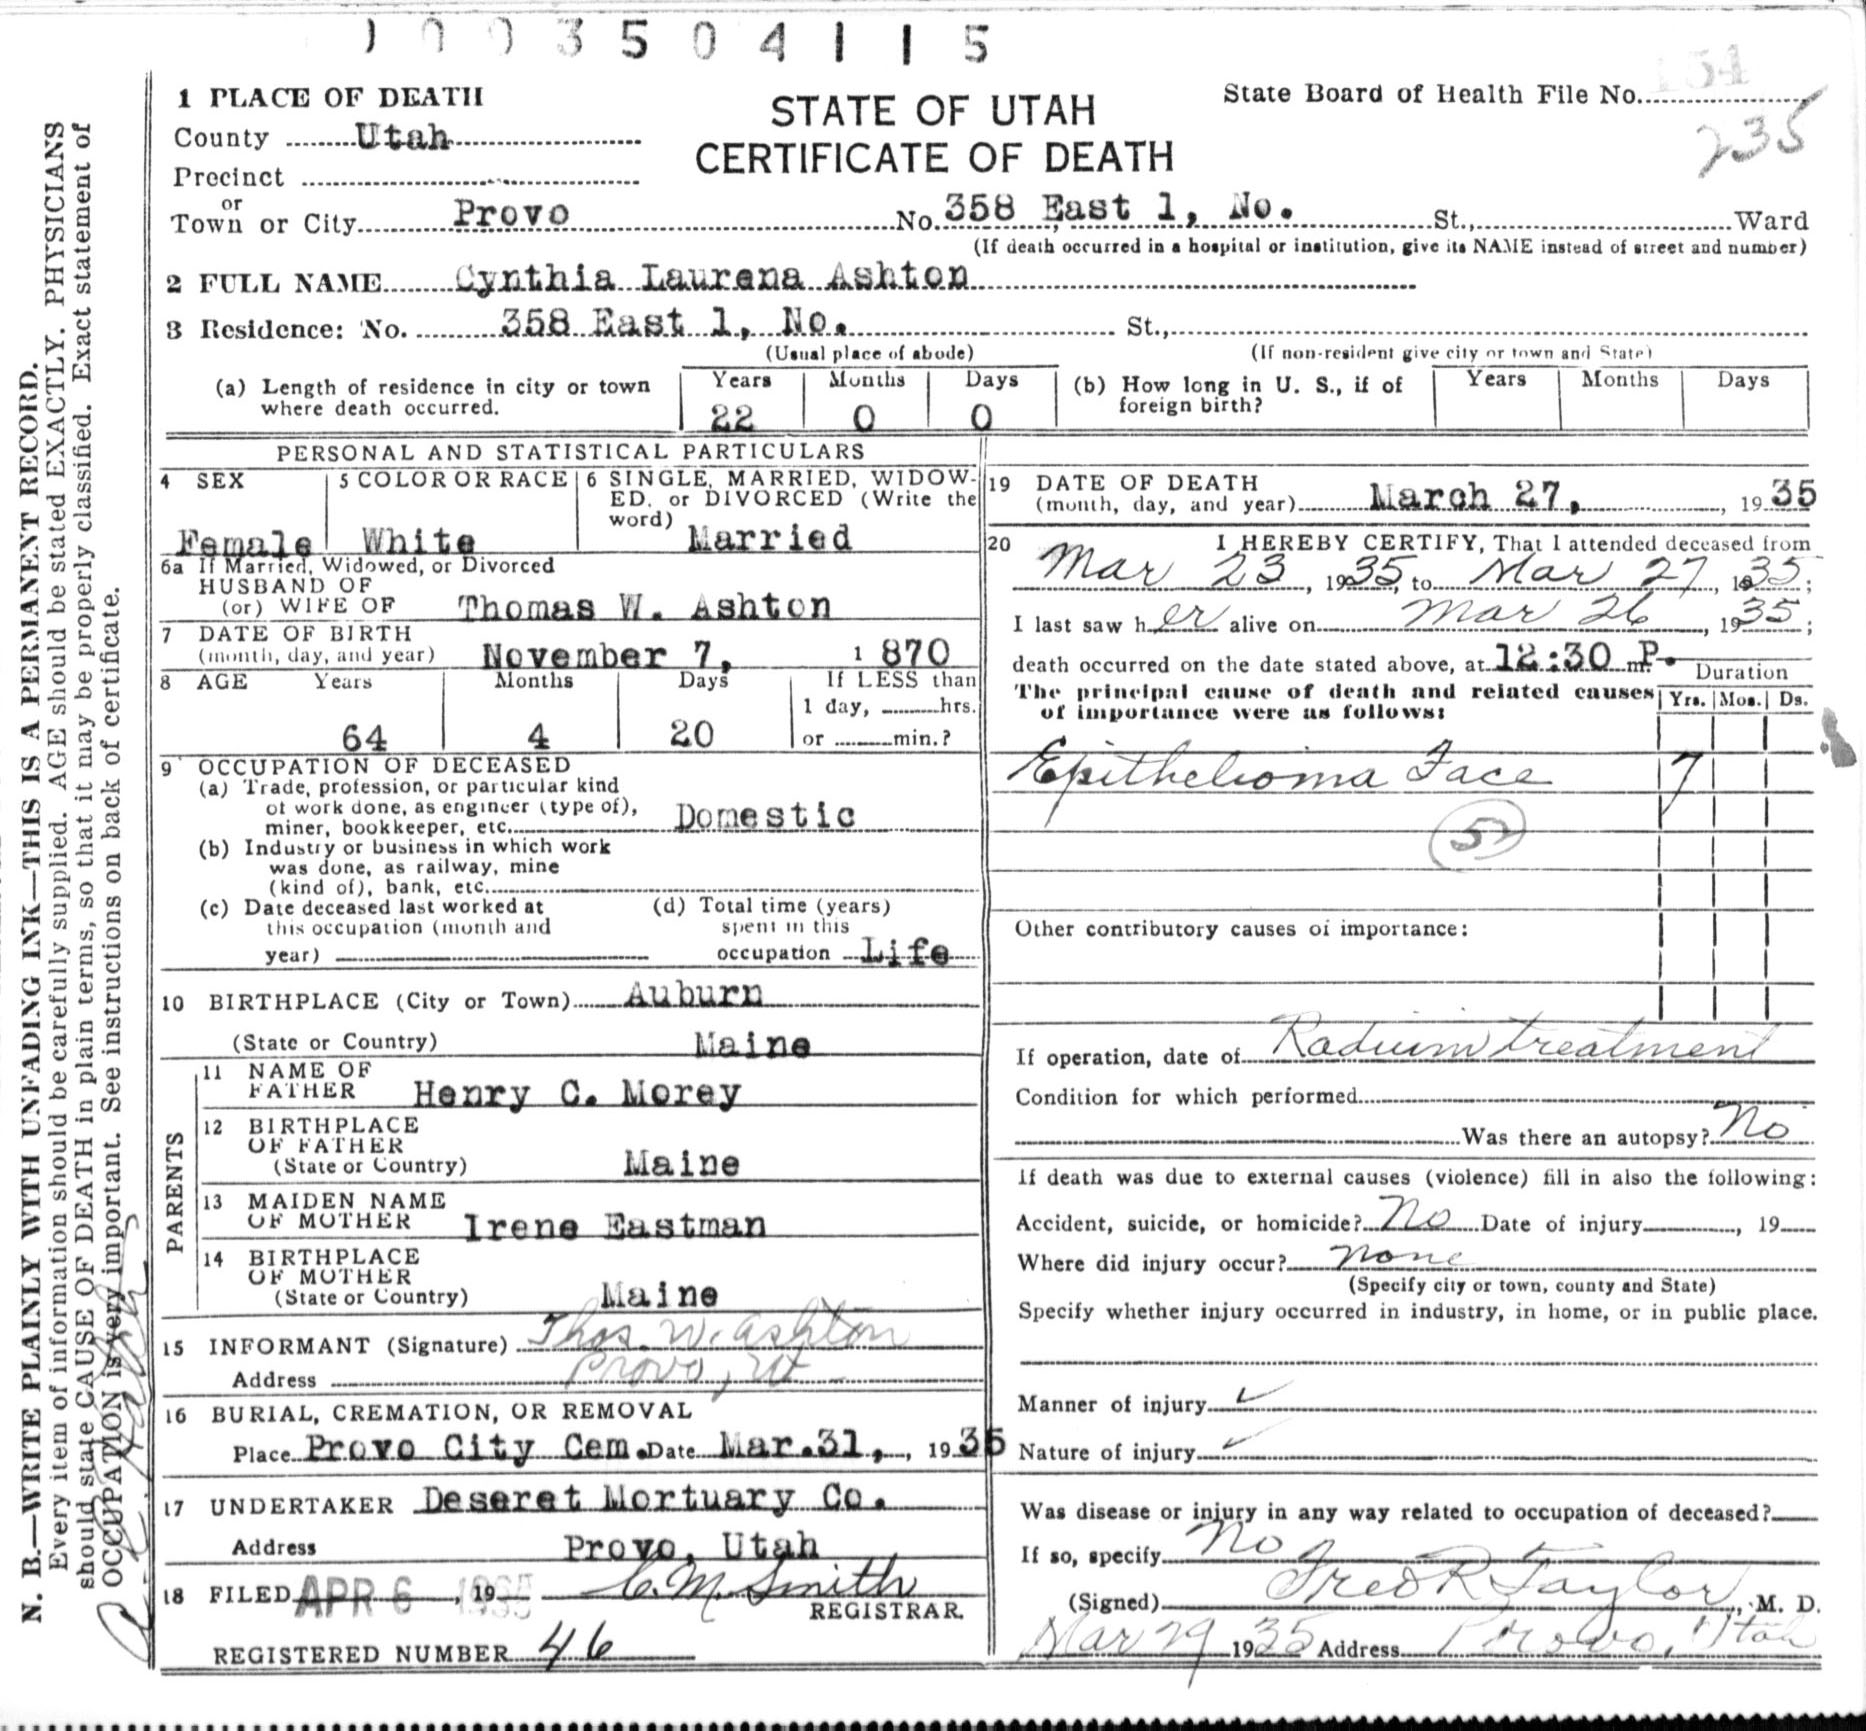 1003504115
1 PLACE OF DEATH
STATE OF UTAH
CERTIFICATE OF DEATH
State Board of Health File No.
235
County Utah
Precinct
or
Town or City Provo No. 358 East 1, No. St., Ward
(If death occurred in a hospital or institution, give its NAME instead of street and number)
2 FULL NAME Cynthia Laurena Ashton
3 Residence: No. 358 East 1, No. St.,
(Usual place of abode) (If non-resident give city or town and State)
(a) Length of residence in city or town where death occurred. Years 22 Months 0 Days 0
(b) How long in U. S., if of foreign birth? Years Months Days
PERSONAL AND STATISTICAL PARTICULARS
4 SEX Female
5 COLOR OR RACE White
6 SINGLE, MARRIED, WIDOW-
ED, or DIVORCED (Write the
word) Married
6a If Married, Widowed, or Divorced
HUSBAND OF
(or) WIFE OF Thomas W. Ashton
7 DATE OF BIRTH
(month, day, and year) November 7, 1870
8 AGE Years Months Days If LESS than
1 day, hrs.
64 4 20 or min.?
9 OCCUPATION OF DECEASED
(a) Trade, profession, or particular kind
of work done, as engineer (type of),
miner, bookkeeper, etc. Domestic
(b) Industry or business in which work
was done, as railway, mine
(kind of), bank, etc.
(c) Date deceased last worked at
this occupation (month and
year)
(d) Total time (years)
spent in this
occupation Life
10 BIRTHPLACE (City or Town) Auburn
(State or Country) Maine
PARENTS
11 NAME OF
FATHER Henry C. Morey
12 BIRTHPLACE
OF FATHER
(State or Country) Maine
13 MAIDEN NAME
OF MOTHER Irene Eastman
14 BIRTHPLACE
OF MOTHER
(State or Country) Maine
15 INFORMANT (Signature) Thos. W. Ashton
Address Provo, Ut
16 BURIAL, CREMATION, OR REMOVAL
Place Provo City Cem. Date Mar. 31, , 1935
17 UNDERTAKER Deseret Mortuary Co.
Address Provo, Utah
18 FILED APR 6 , 19 1935 C. M. Smith
REGISTRAR.
REGISTERED NUMBER 46
19 DATE OF DEATH
(month, day, and year) March 27, , 1935
20 I HEREBY CERTIFY, That I attended deceased from
Mar 23, 1935, to Mar 27, 1935;
I last saw her alive on Mar 26, 1935;
death occurred on the date stated above, at 12:30 m. P.
Duration
The principal cause of death and related causes Yrs. Mos. Ds.
of importance were as follows:
Epithelioma Face 7
Other contributory causes of importance:
If operation, date of Radium treatment
Condition for which performed
Was there an autopsy? No
If death was due to external causes (violence) fill in also the following:
Accident, suicide, or homicide? No Date of injury , 19
Where did injury occur? none
(Specify city or town, county and State)
Specify whether injury occurred in industry, in home, or in public place.
Manner of injury
Nature of injury
Was disease or injury in any way related to occupation of deceased?
If so, specify No
(Signed) Fred R Taylor, M. D.
Mar 29 1935 Address Provo, Utah
N. B.—WRITE PLAINLY WITH UNFADING INK—THIS IS A PERMANENT RECORD.
Every item of information should be carefully supplied. AGE should be stated EXACTLY. PHYSICIANS
should state CAUSE OF DEATH in plain terms, so that it may be properly classified. Exact statement of
OCCUPATION is very important. See instructions on back of certificate.